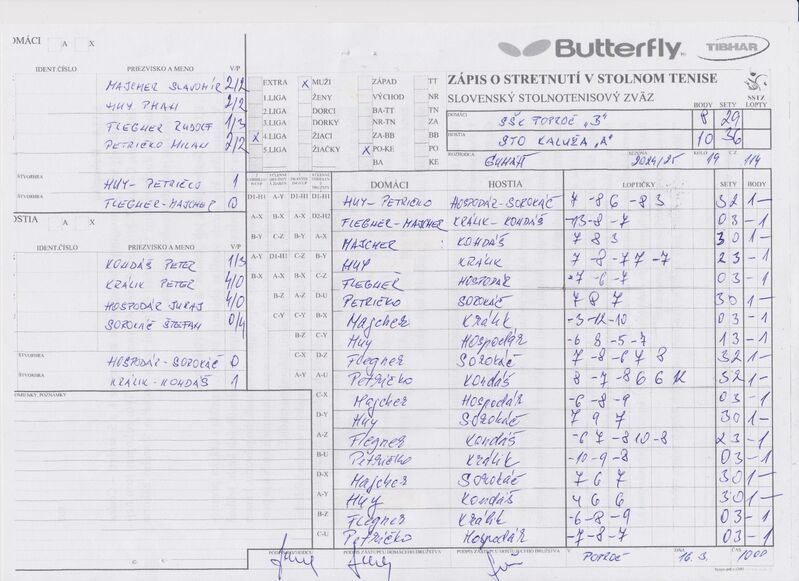 DOMÁCI A X
IDENT.ČÍSLO PRIEZVISKO A MENO V/P
MAJCHER SLAVOMÍR 2/2
HUY PHAN 2/2
FLEGNER RUDOLF 1/3
PETRIČKO MILAN 2/2
ŠTVORHRA
HUY - PETRIČKO 1
FLEGNER-MAJCHER 0
HOSTIA A X
IDENT.ČÍSLO PRIEZVISKO A MENO V/P
KONDÁŠ PETER 1/3
KRÁLIK PETER 4/0
HOSPODÁR JURAJ 4/0
SOROKÁČ ŠTEFAN 0/4
ŠTVORHRA
HOSPODÁR-SOROKÁČ 0
ŠTVORHRA
KRÁLIK-KONDÁŠ 1
POMIENKY, POZNÁMKY
Butterfly TIBHAR
EXTRA X MUŽI ZÁPAD TT
1.LIGA ŽENY VÝCHOD NR
2.LIGA DORCI BA-TT TN
3.LIGA DORKY NR-TN ZA
X 4.LIGA ŽIACI ZA-BB BB
5.LIGA ŽIAČKY X PO-KE PO
BA KE
ZÁPIS O STRETNUTÍ V STOLNOM TENISE
SLOVENSKÝ STOLNOTENISOVÝ ZVÄZ SSTZ
BODY SETY LOPTY
DOMÁCI ŠŠK POPROČ "B" 8 29
HOSTIA STO KALUŽA "A" 10 36
ROZHODCA GUMAN SEZÓNA 2024/25 KOLO 19 Č.Z. 114
DOMÁCI HOSTIA LOPTIČKY SETY BODY
D1-H1 A-Y D1-H1 D1-H1 HUY - PETRIČKO HOSPODÁR-SOROKÁČ 7 -8 6 -8 3 32 1-
A-X B-X A-X D2-H2 FLEGNER-MAJCHER KRÁLIK-KONDÁŠ -13 -8 -7 03 -1
B-Y C-Z B-Y A-X MAJCHER KONDÁŠ 7 8 3 30 1-
A-Y D1-H1 C-Z B-Y HUY KRÁLIK 7 -8 -7 7 -7 23 -1
B-X A-X B-X C-Z FLEGNER HOSPODÁR -7 -6 -7 03 -1
B-Z A-Z D-U PETRIČKO SOROKÁČ 7 8 7 30 1-
C-Y C-Y B-X Majcher Králik -3 -12 -10 03 -1
B-Z C-Y Huy Hospodár -6 8 -5 -7 13 -1
C-X D-Z Flegner Sorokáč 7 -8 -6 7 8 32 1-
A-Y A-U Petričko Kondáš 8 -7 -8 6 6 32 1-
C-X Majcher Hospodár -6 -8 -9 03 -1
D-Y Huy Sorokáč 7 9 7 30 1-
A-Z Flegner Kondáš -6 7 -8 10 -8 23 -1
B-U Petričko Králik -10 -9 -8 03 -1
D-X Majcher Sorokáč 7 6 7 30 1-
A-Y Huy Kondáš 4 6 6 30 1-
B-Z Flegner Králik -6 -8 -9 03 -1
C-U Petričko Hospodár -7 -8 -7 03 -1
PODPIS ROZHODCU PODPIS ZÁSTUPCU DOMÁCEHO DRUŽSTVA PODPIS ZÁSTUPCU HOSŤUJÚCEHO DRUŽSTVA V POPROČ DŇA 16.3. 1000